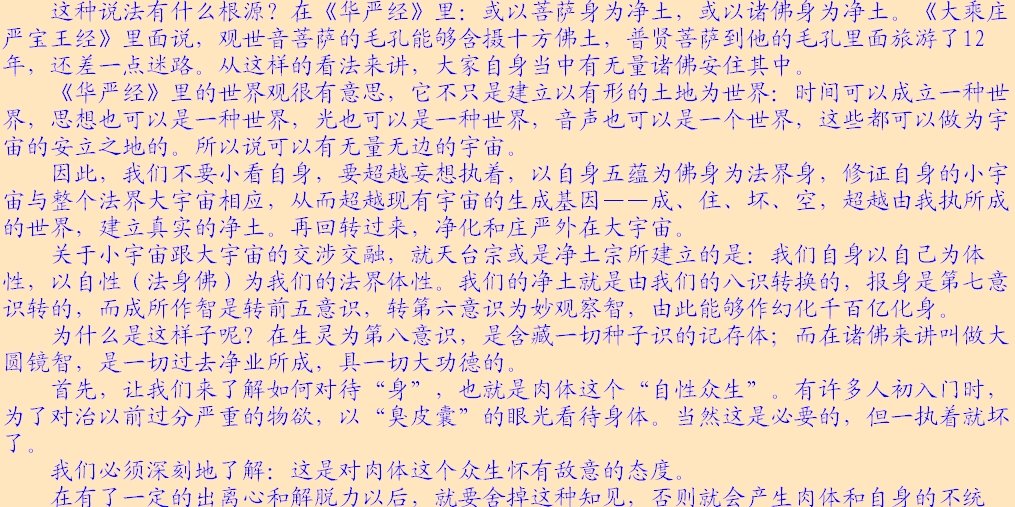 这种说法有什么根源？在《华严经》里：或以菩萨身为净土，或以诸佛身为净土。《大乘庄
严宝王经》里面说，观世音菩萨的毛孔能够含摄十方佛土，普贤菩萨到他的毛孔里面旅游了12
年，还差一点迷路。从这样的看法来讲，大家自身当中有无量诸佛安住其中。
《华严经》里的世界观很有意思，它不只是建立以有形的土地为世界：时间可以成立一种世
界，思想也可以是一种世界，光也可以是一种世界，音声也可以是一个世界，这些都可以做为宇
宙的安立之地的。所以说可以有无量无边的宇宙。
因此，我们不要小看自身，要超越妄想执着，以自身五蕴为佛身为法界身，修证自身的小宇
宙与整个法界大宇宙相应，从而超越现有宇宙的生成基因——成、住、坏、空，超越由我执所成
的世界，建立真实的净土。再回转过来，净化和庄严外在大宇宙。
关于小宇宙跟大宇宙的交涉交融，就天台宗或是净土宗所建立的是：我们自身以自己为体
性，以自性（法身佛）为我们的法界体性。我们的净土就是由我们的八识转换的，报身是第七意
识转的，而成所作智是转前五意识，转第六意识为妙观察智，由此能够作幻化千百亿化身。
为什么是这样子呢？在生灵为第八意识，是含藏一切种子识的记存体；而在诸佛来讲叫做大
圆镜智，是一切过去净业所成，具一切大功德的。
首先，让我们来了解如何对待“身”，也就是肉体这个“自性众生”。有许多人初入门时，
为了对治以前过分严重的物欲，以“臭皮囊”的眼光看待身体。当然这是必要的，但一执着就坏
了。
我们必须深刻地了解：这是对肉体这个众生怀有敌意的态度。
在有了一定的出离心和解脱力以后，就要舍掉这种知见，否则就会产生肉体和自身的不统